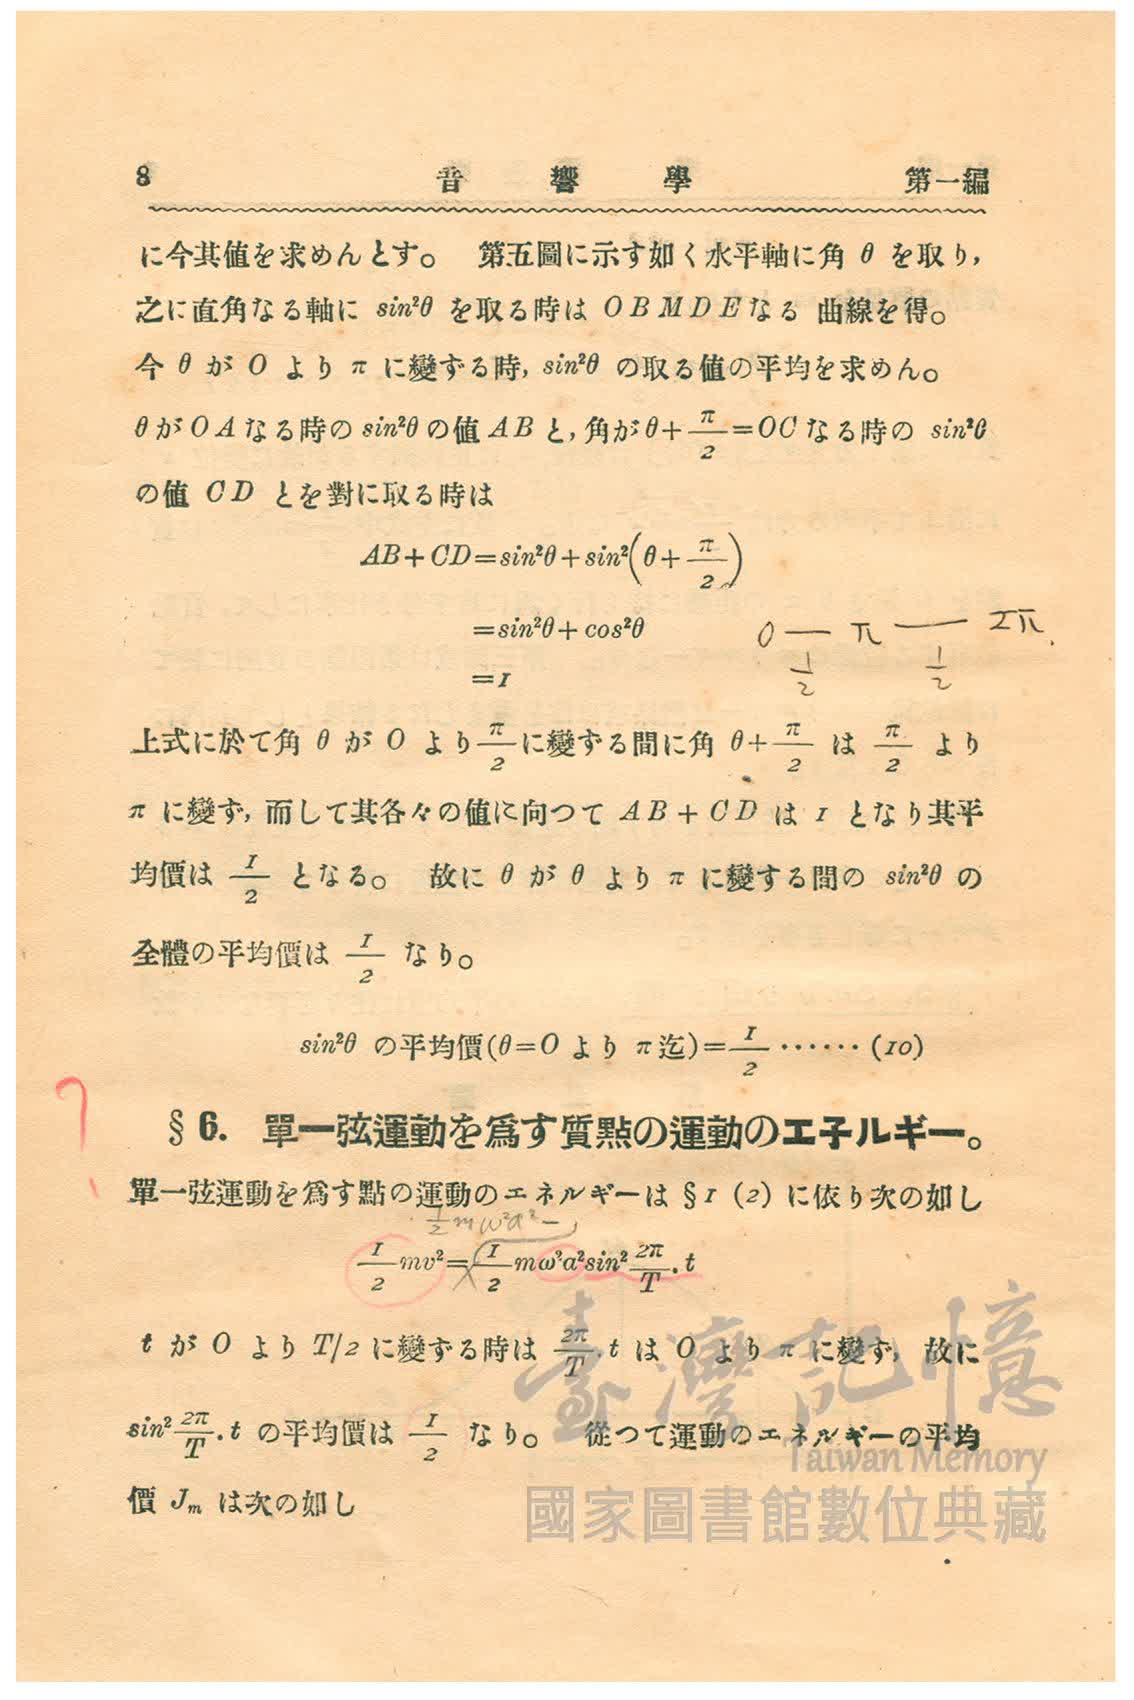 8 音響學 第一編
に今其値を求めんとす。 第五圖に示す如く水平軸に角 θ を取り,
之に直角なる軸に sin²θ を取る時は O B M D E なる 曲線を得。
今 θ が O より π に變ずる時, sin²θ の取る値の平均を求めん。
θが O A なる時の sin²θ の値 AB と, 角が θ+π/2=OC なる時の sin²θ
の値 CD とを對に取る時は
AB+CD=sin²θ+sin²(θ+π/2)
=sin²θ+cos²θ
0 — π — 2π.
=1
1/2 1/2
上式に於て角 θ が O より π/2 に變ずる間に角 θ+π/2 は π/2 より
π に變ず, 而して其各々の値に向つて AB+CD は 1 となり其平
均價は 1/2 となる。 故に θ が θ より π に變する間の sin²θ の
全體の平均價は 1/2 なり。
sin²θ の平均價(θ=O より π迄)=1/2 ⋯⋯ (10)
?
§ 6. 單一弦運動を爲す質點の運動のエ子ルギー。
單一弦運動を爲す點の運動のエネルギーは §1 (2) に依り次の如し
1/2 mω²a²
1/2 mv²=1/2 mω²a²sin² 2π/T . t
t が O より T/2 に變ずる時は 2π/T . t は O より π に變ず, 故に
sin² 2π/T . t の平均價は 1/2 なり。 從つて運動のエネルギーの平均
價 Jm は次の如し
臺灣記憶
Taiwan Memory
國家圖書館數位典藏